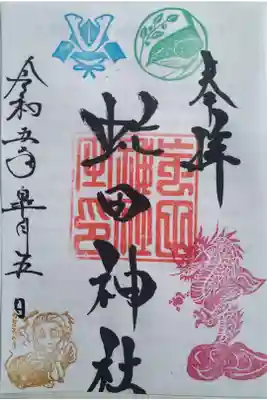 奉拝
蛇田神社
令和五年皐月五日